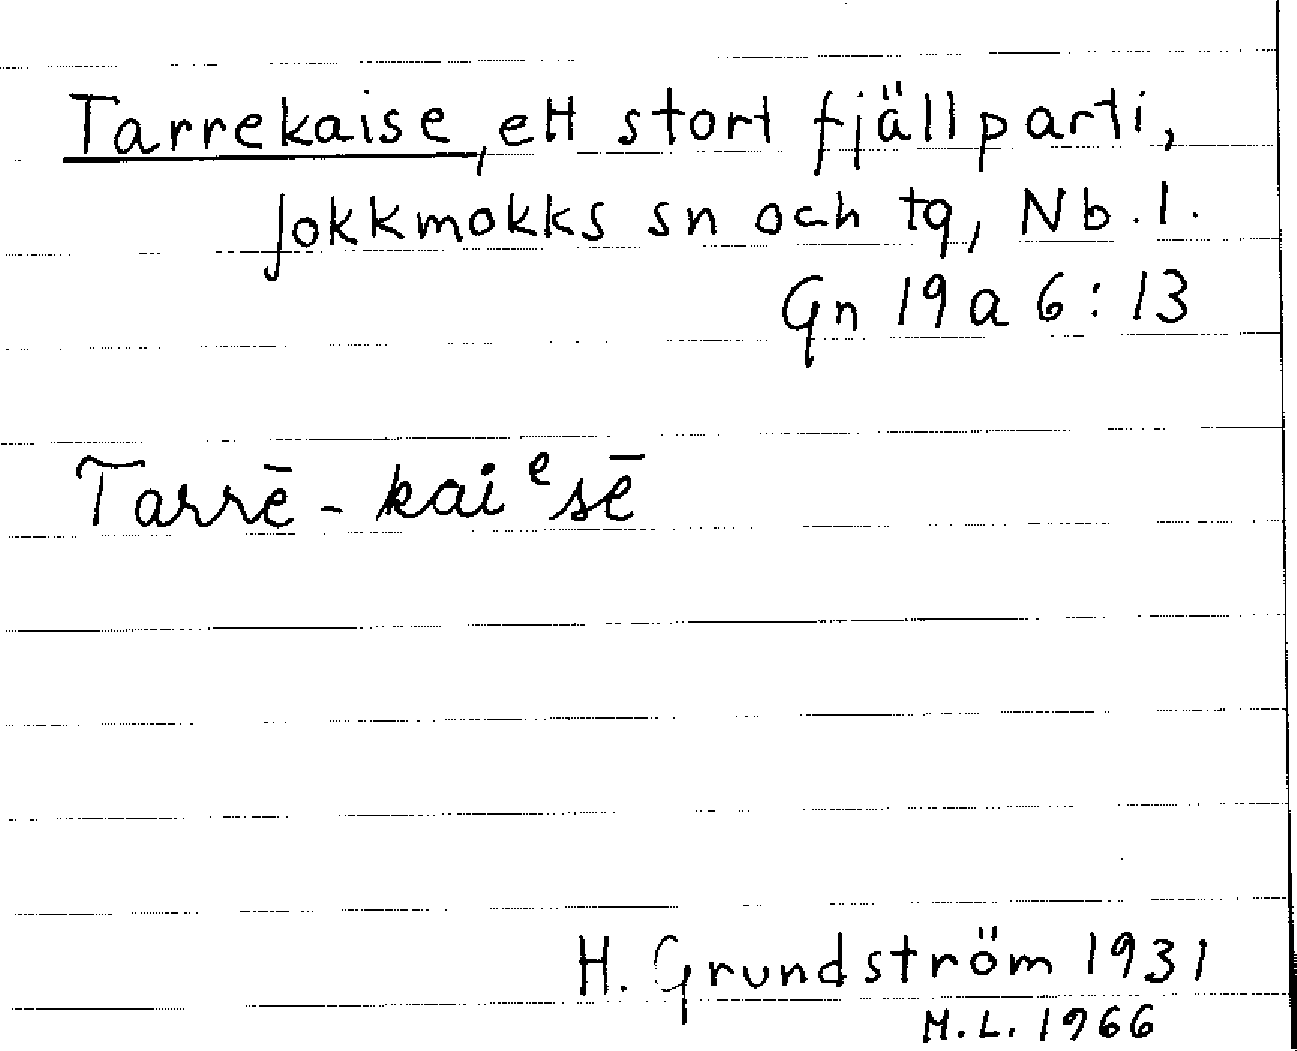 Tarrekaise, ett stort fjällparti,
Jokkmokks sn och tg, Nb. l.
Gn 19 a 6:13
Tarrē-kaiᵉsē
H. Grundström 1931
M.L. 1966